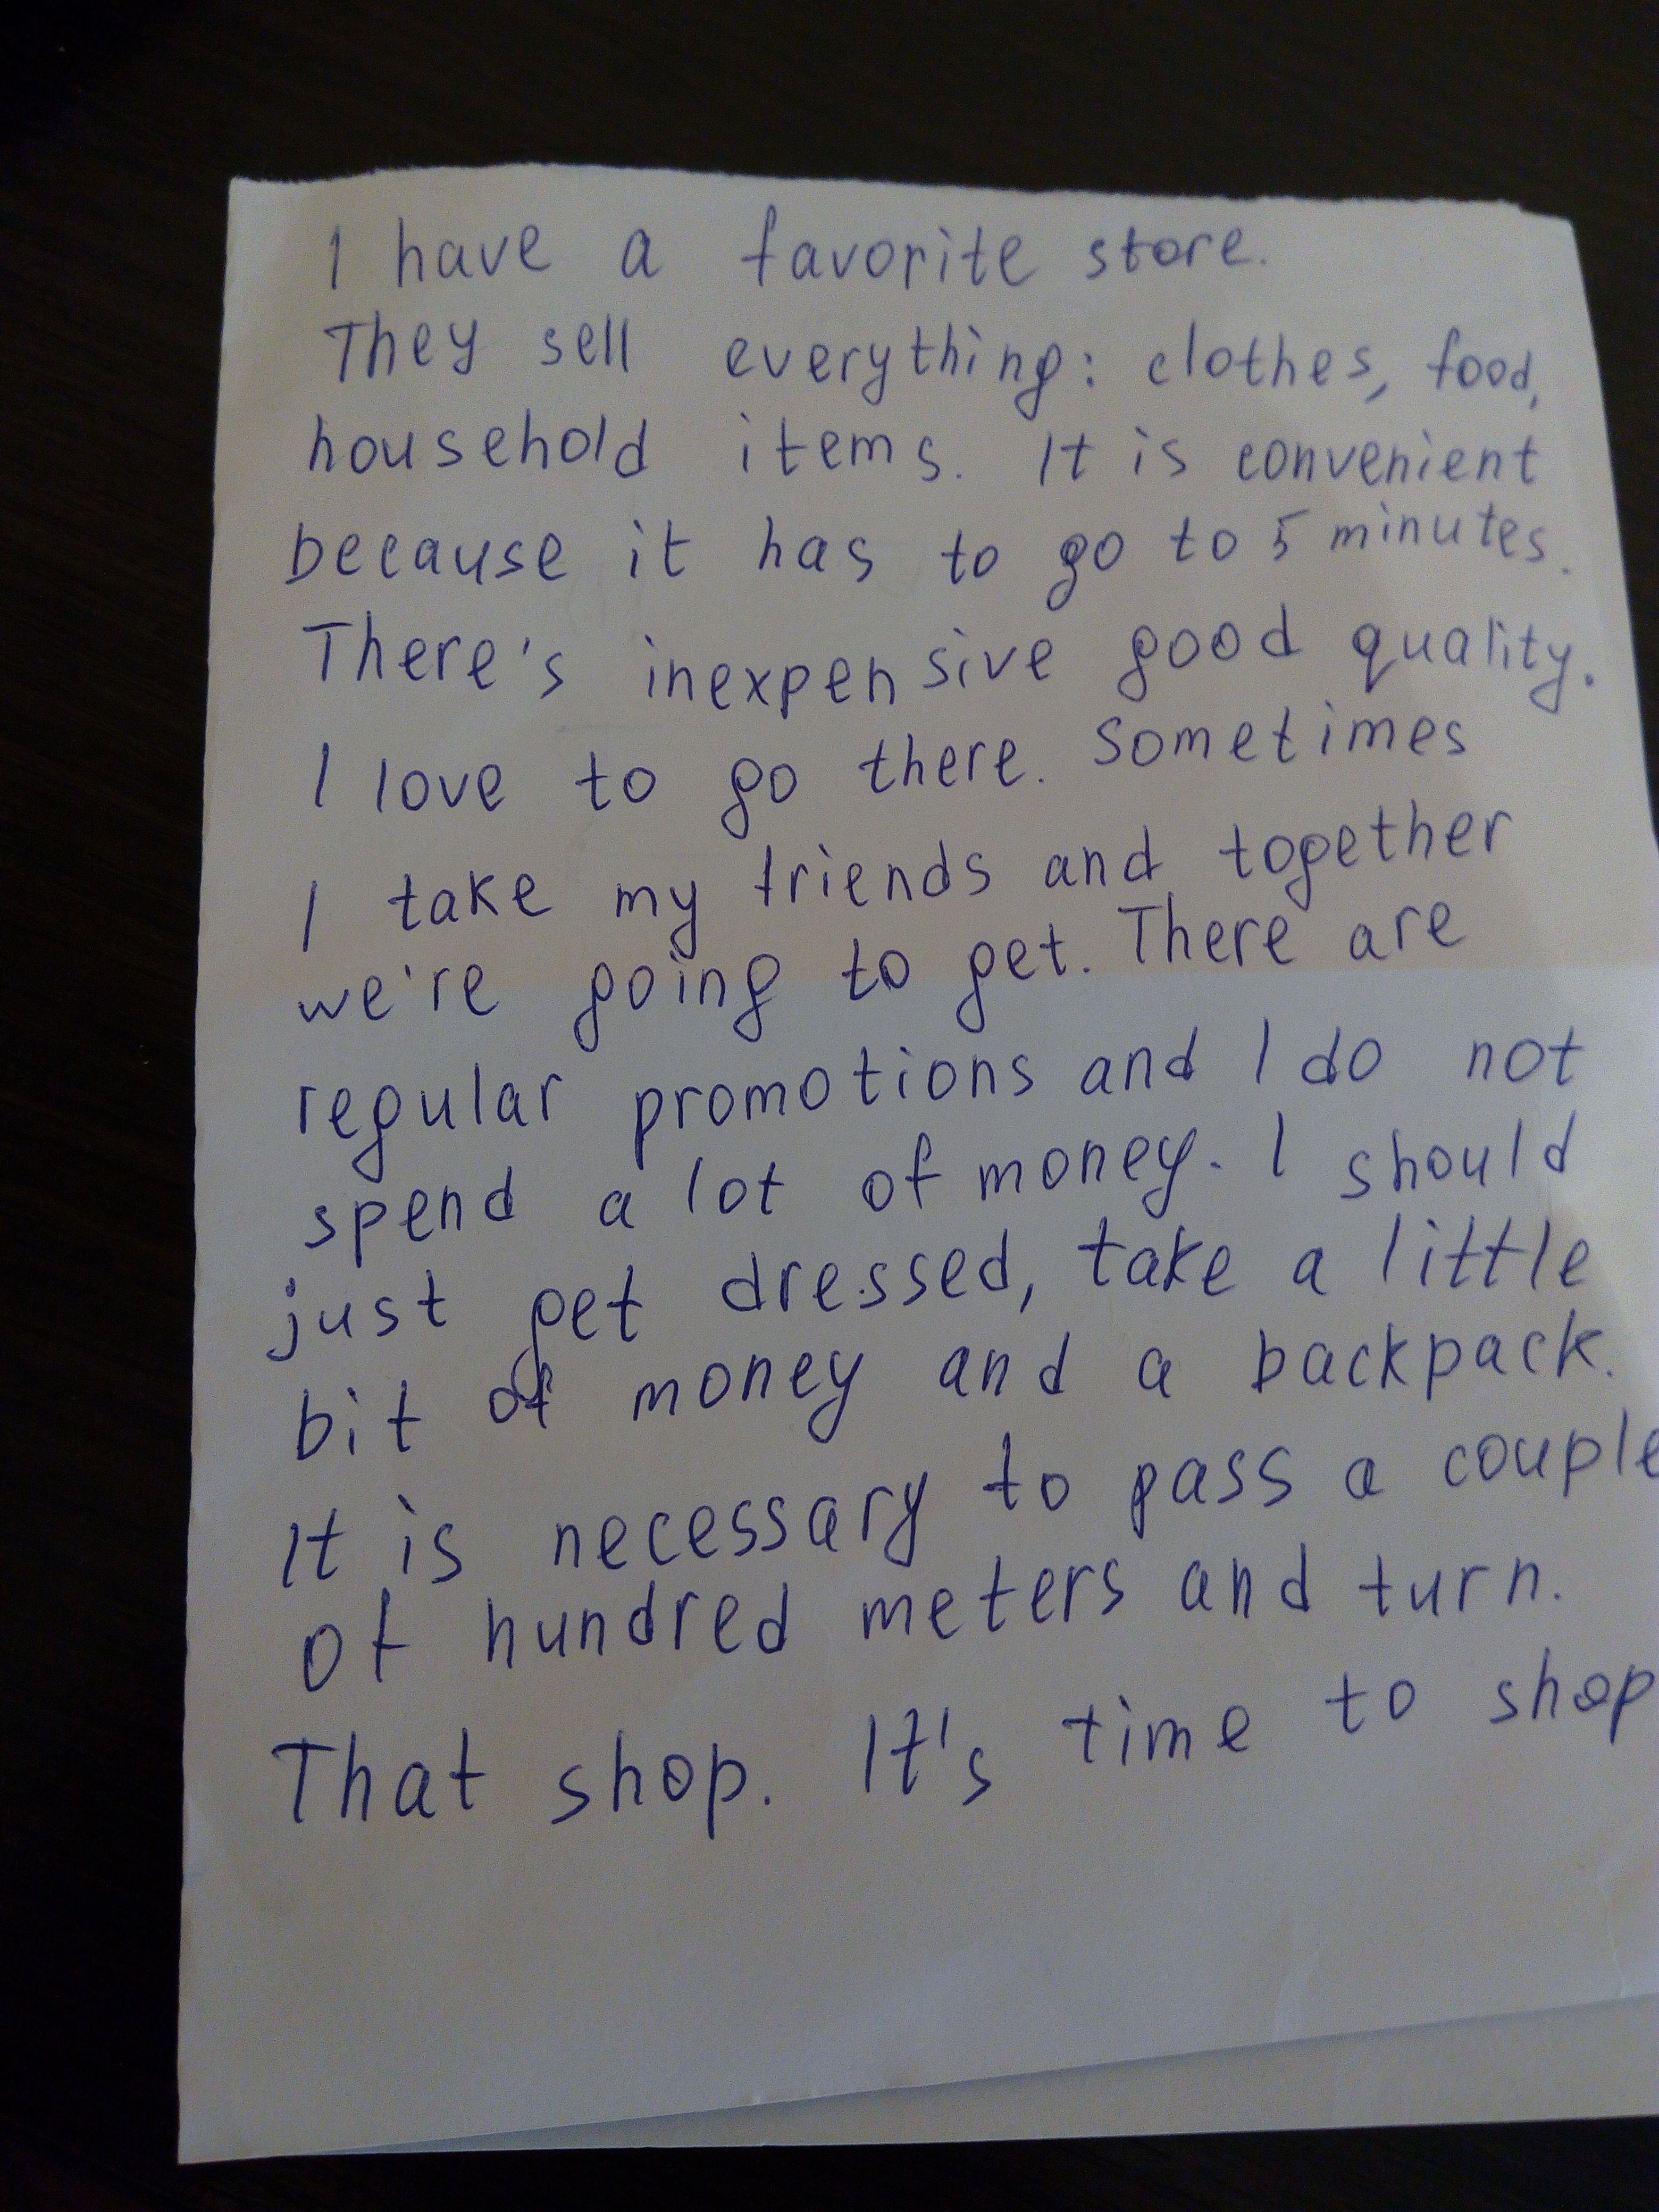 I have a favorite store.
They sell everything: clothes, food,
household items. It is convenient
because it has to go to 5 minutes.
There's inexpensive good quality.
I love to go there. Sometimes
I take my friends and together
we're going to get. There are
regular promotions and I do not
spend a lot of money. I should
just get dressed, take a little
bit of money and a backpack.
It is necessary to pass a couple
of hundred meters and turn.
That shop. It's time to shop